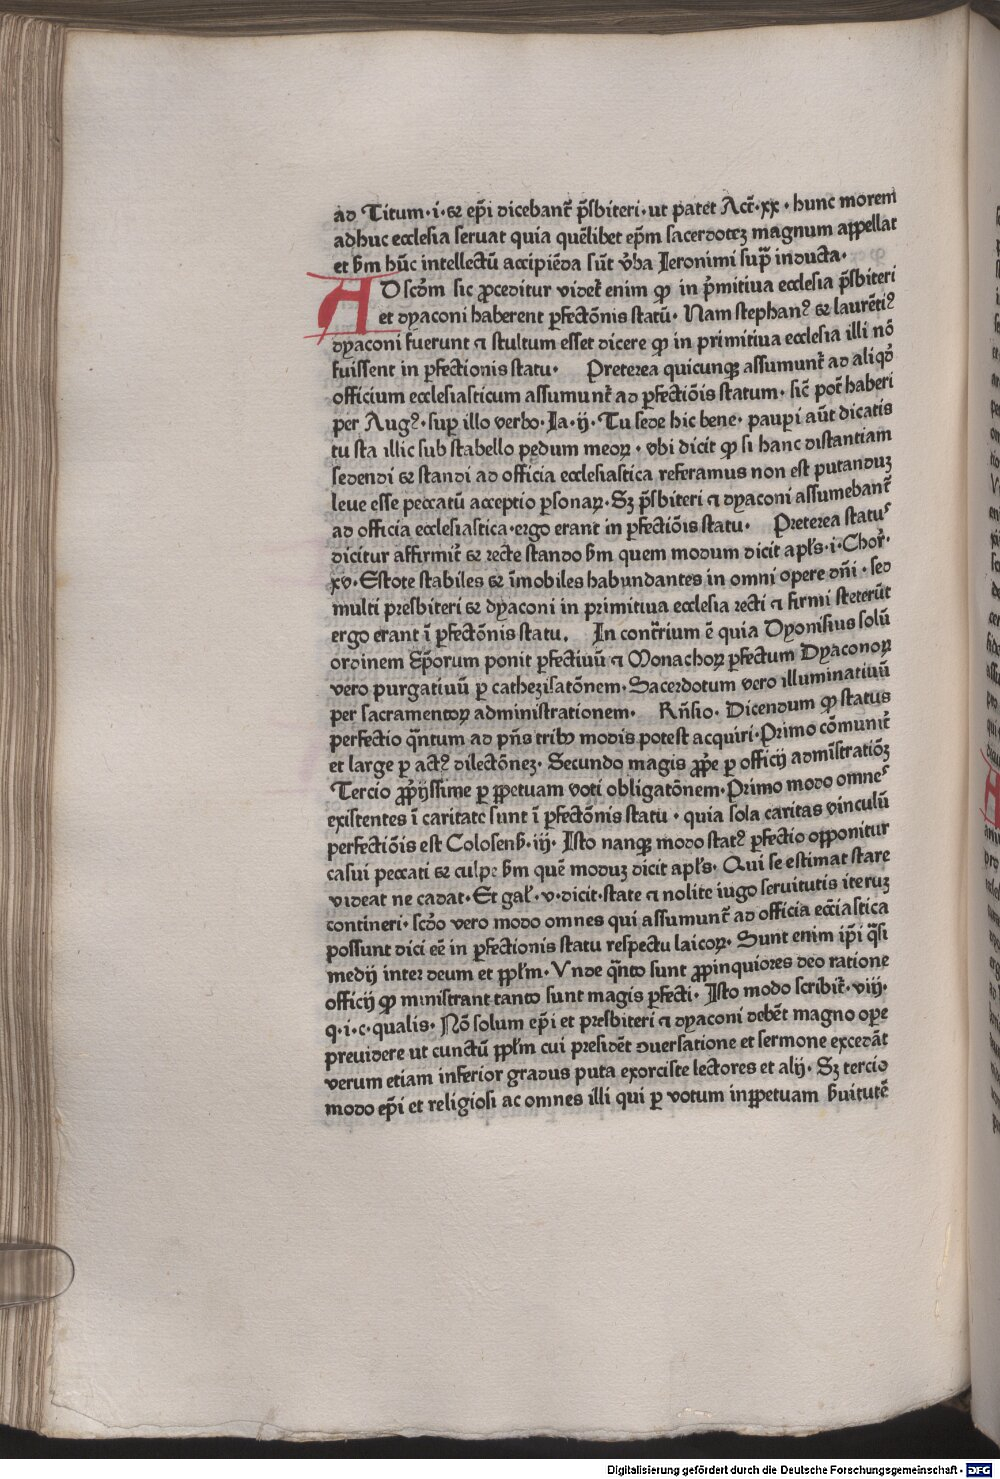 ad Titum·i·⁊ ep̄i dicebant̄ p̄sbiteri·ut patet Act̄·xx·hunc morem
adhuc ecclesia seruat quia quēlibet ep̄m sacerdotez magnum appellat
et ẜm hūc intellectū accipiēda sūt v̓ba Ieronimi sup̄ inducta·
AD scd̄m sic ꝓceditur videt̄ enim ꝙ in p̓mitiua ecclesia p̄sbiteri
et dyaconi haberent ꝑfectōnis statū· Nam stephanꝰ ⁊ laurētiꝰ
dyaconi fuerunt ⁊ stultum esset dicere ꝙ in primitiua ecclesia illi nō
fuissent in ꝑfectionis statu· Preterea quicunqꝫ assumunt̄ ad aliqd̓
officium ecclesiasticum assumunt̄ ad ꝑfectiōis statum· sic̄ pot̄ haberi
per Augꝰ·suꝑ illo verbo·Ia·ij·Tu sede hic bene·pauꝑi aūt dicatis
tu sta illic sub stabello pedum meoꝝ·vbi dicit ꝙ si hanc distantiam
sedendi ⁊ standi ad officia ecclesiastica referamus non est putanduꝫ
leue esse peccatū acceptio ꝑsonaꝝ·Sꝫ p̄sbiteri ⁊ dyaconi assumebant̄
ad officia ecclesiastica·ergo erant in ꝑfectiōis statu· Preterea statuˢ
dicitur affirmit̄ ⁊ recte stando ẜm quem modum dicit apl̓s·i·Chor̄·
xv·Estote stabiles ⁊ īmobiles habundantes in omni opere dn̄i·sed
multi presbiteri ⁊ dyaconi in primitiua ecclesia recti ⁊ firmi steterūt
ergo erant ī ꝑfectōnis statu. In cont̄rium ē quia Dyonisius solū
ordinem Ep̄orum ponit ꝑfectiuū ⁊ Monachoꝝ ꝑfectum Dyaconoꝝ
vero purgatiuū ꝑ cathezisatōnem·Sacerdotum vero illuminatiuū
per sacramentoꝝ administrationem· Rn̄sio·Dicendum ꝙ status
perfectio qn̄tum ad pn̄s tribꝰ modis potest acquiri·Primo cōmunit̄
et large ꝑ actꝰ dilectōnez·Secundo magis ꝓp̓e ꝑ officij admīstratiōꝫ
Tercio ꝓp̓ijssime ꝑ ꝑpetuam voti obligatōnem·Primo modo omneˢ
existentes ī caritate sunt ī ꝑfectōnis statu·quia sola caritas vinculū
perfectiōis est Colosenẜ·iij·Isto nanqꝫ modo statꝰ ꝑfectio opponitur
casui peccati ⁊ culpe ẜm quē moduꝫ dicit apl̓s·Qui se estimat stare
videat ne cadat·Et gal̓·v·dicit·state ⁊ nolite iugo seruitutis iteruꝫ
contineri·scd̄o vero modo omnes qui assumunt̄ ad officia ecc̄iastica
possunt dici eē in ꝑfectionis statu respectu laicoꝝ·Sunt enim ip̄i qᷓsi
medij inter deum et ppl̓m·Vnde qn̄to sunt ꝓpinquiores deo ratione
officij ꝙ ministrant tanto sunt magis ꝑfecti·Isto modo scribit̄·viij·
q·i·c·qualis·Nō solum ep̄i et presbiteri ⁊ dyaconi debēt magno oꝑe
preuidere ut cunctū ppl̓m cui presidēt ↄuersatione et sermone excedāt
verum etiam inferior gradus puta exorciste lectores et alij·Sꝫ tercio
modo ep̄i et religiosi ac omnes illi qui ꝑ votum inꝑpetuam ẜuitutē
Digitalisierung gefördert durch die Deutsche Forschungsgemeinschaft · DFG